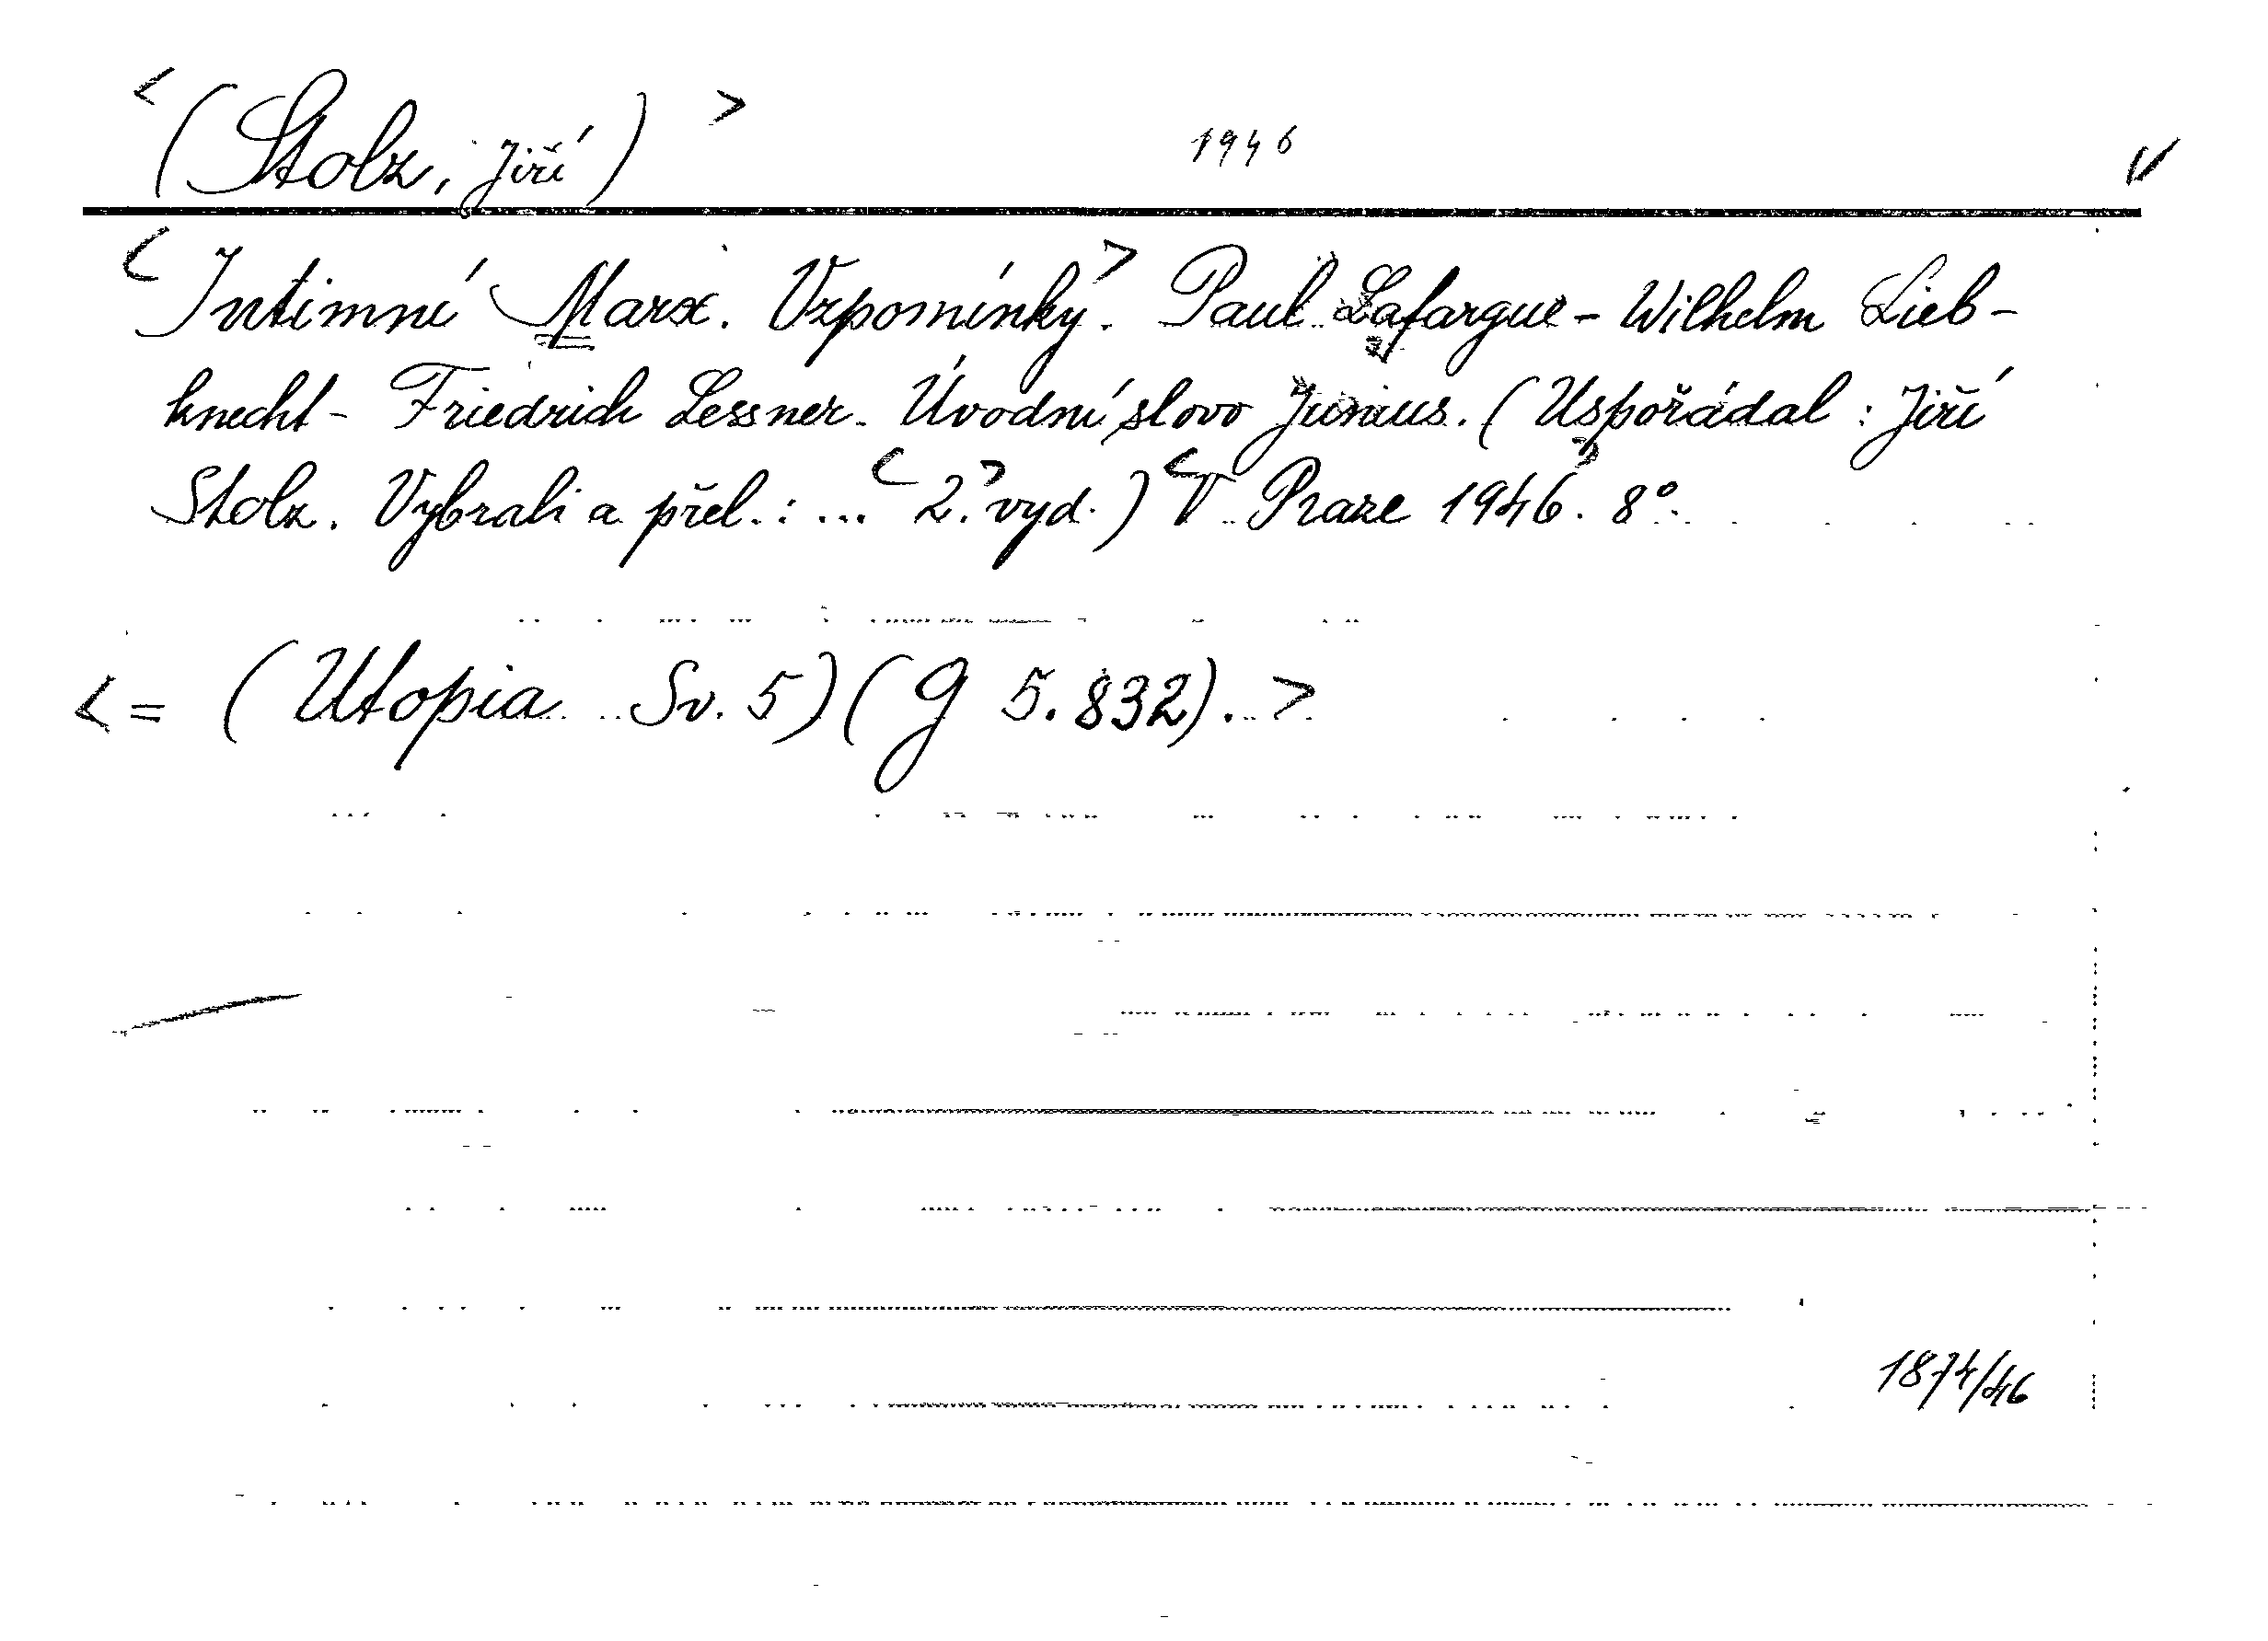 <(Stolz, Jiří)> 1946 V
<Intimní Marx. Vzpomínky>. Paul Lafargue - Wilhelm Lieb-
knecht - Friedrich Lessner. Úvodní slovo Junius. (Uspořádal: Jiří
Stolz. Vybrali a přel.: ... <2.> vyd.) <V Praze 1946>. 8°.
<= (Utopia Sv. 5) (g 5.832).>
1874/46